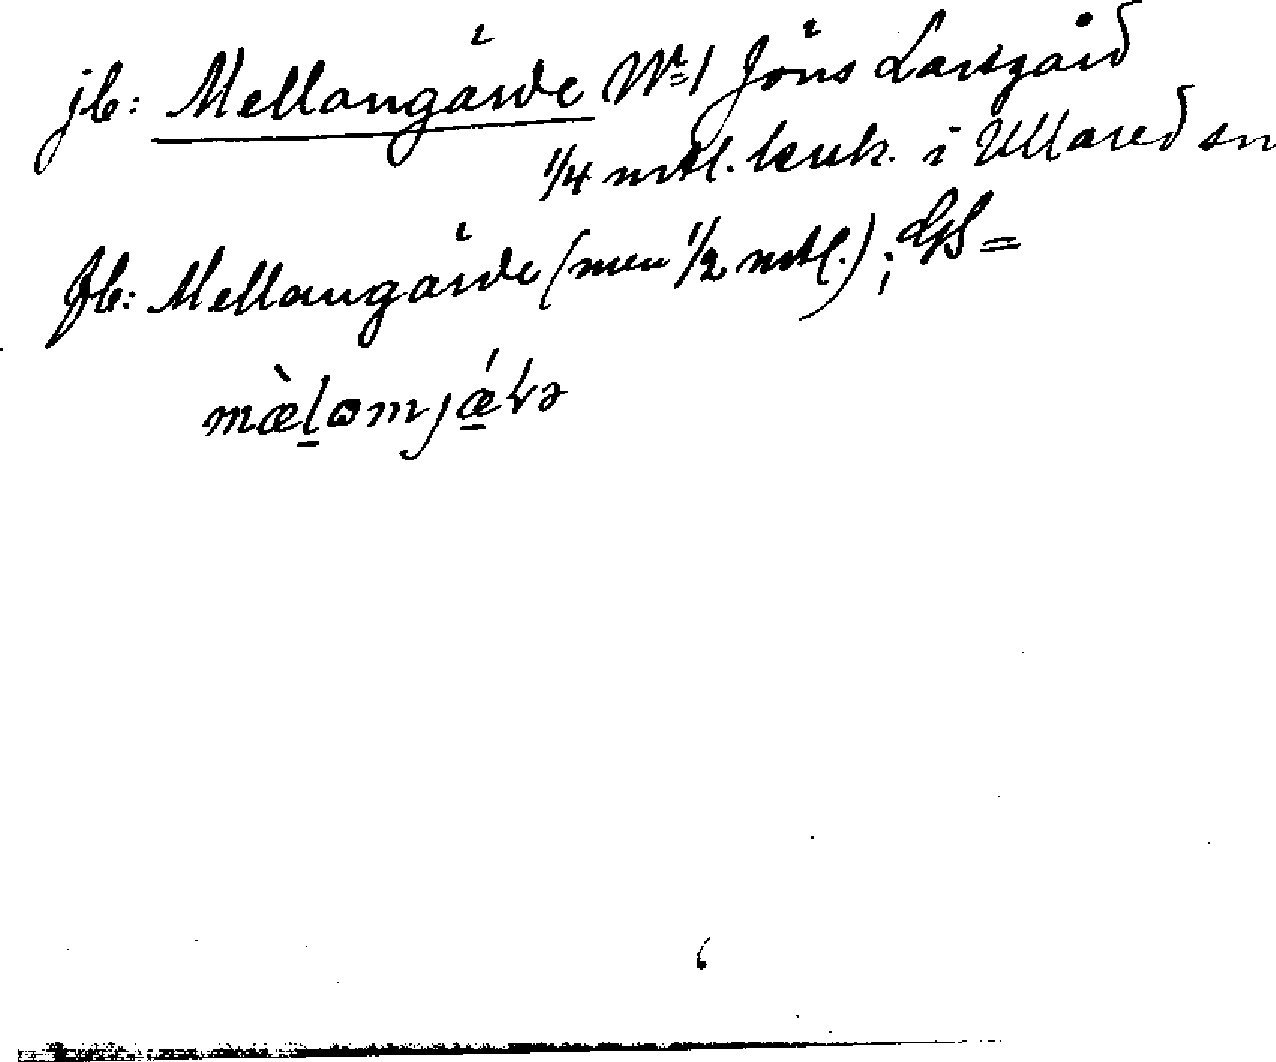 jb: Mellangärde Nr 1 Jöns Larsgård
1/4 mtl. kruk. i Ullared sn
Jb: Mellangärde (men 1/2 mtl.); GS =
mæ̀lɷmjǽrə